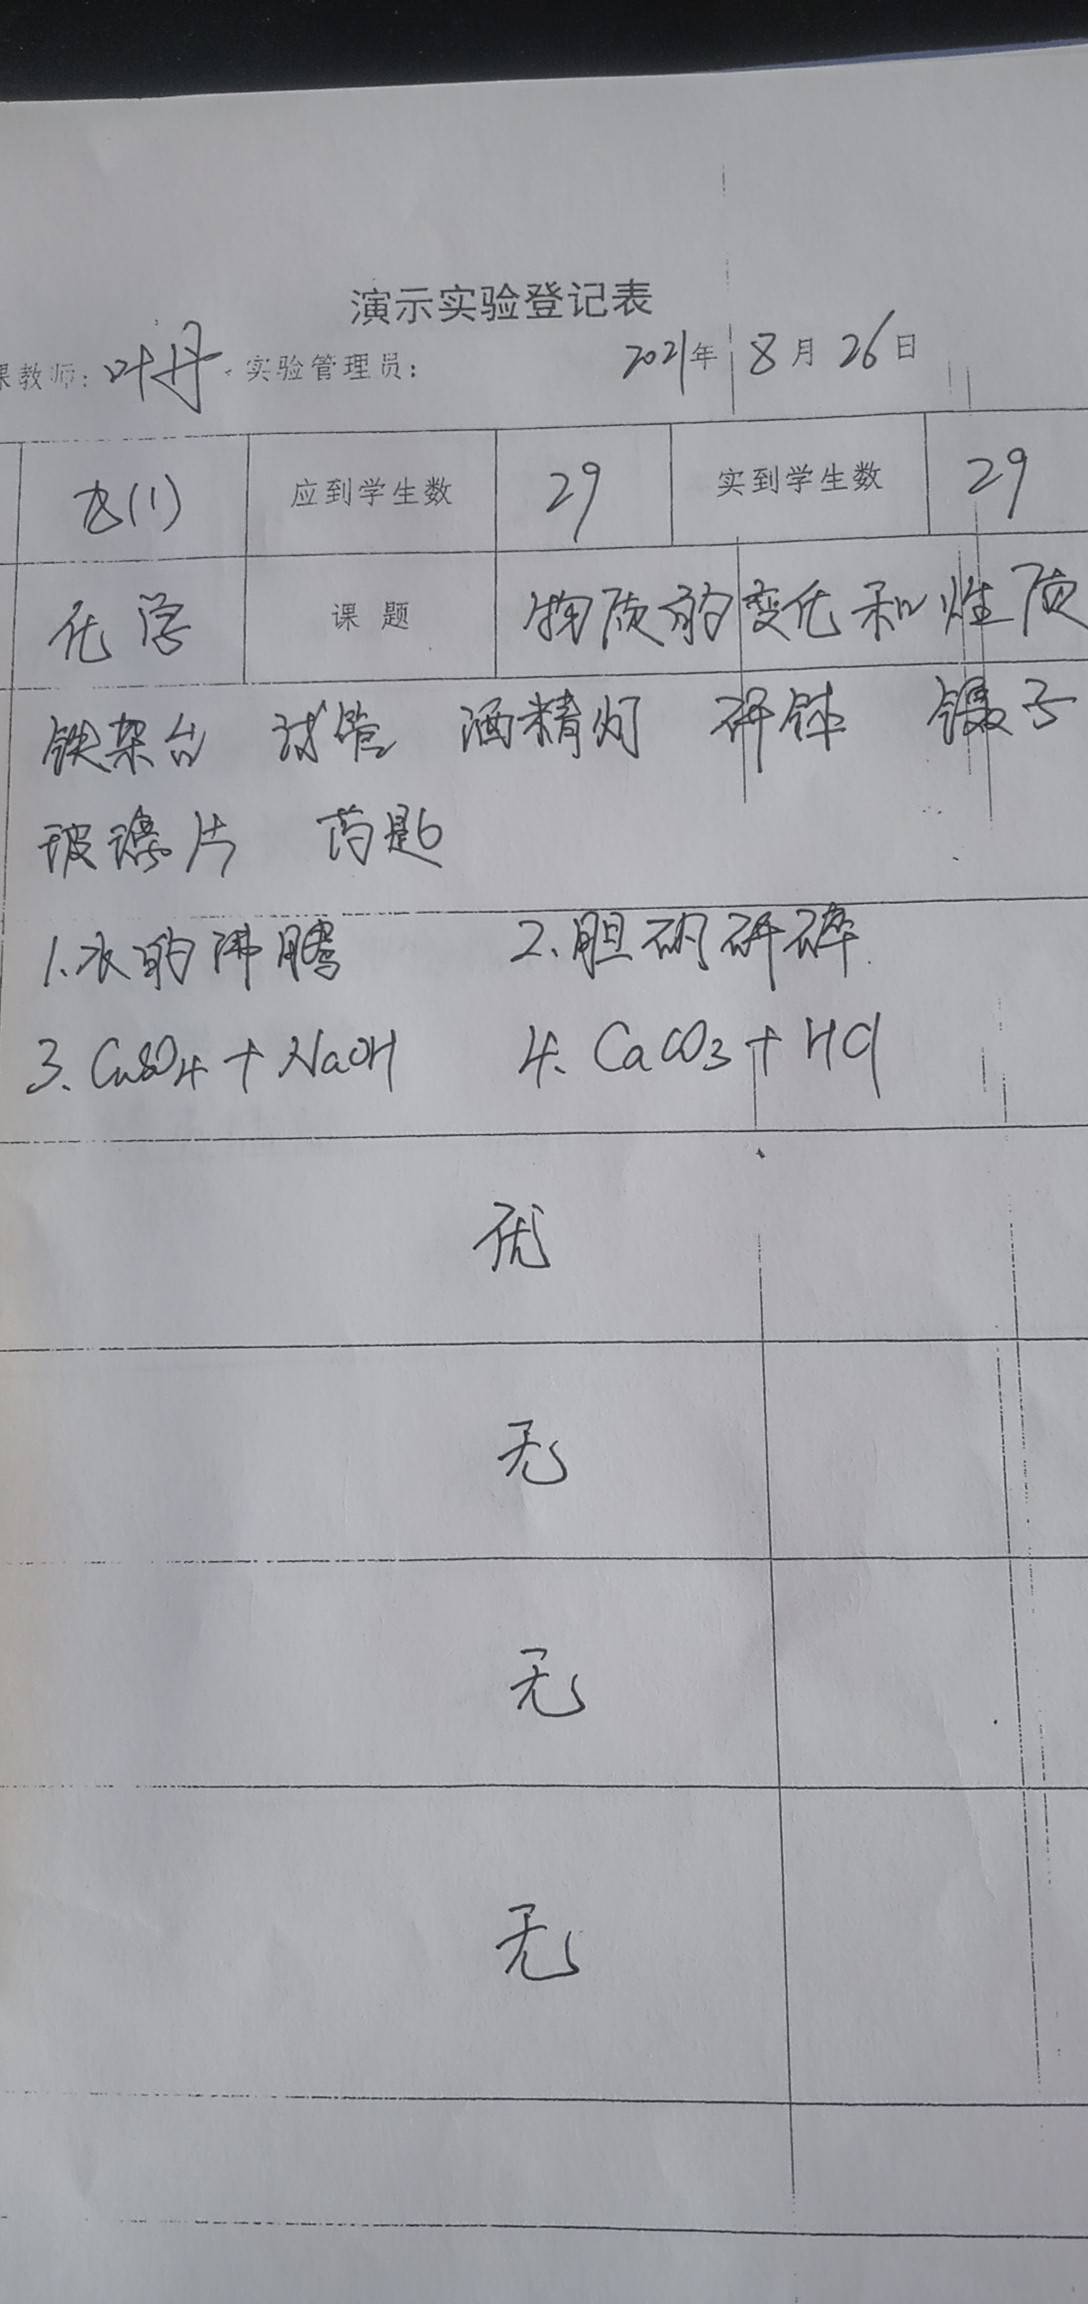 演示实验登记表
课教师：叶丹 实验管理员： 2021年 8月 26日
(1) 应到学生数 29 实到学生数 29
化学 课题 物质的变化和性质
铁架台 试管 酒精灯 研钵 镊子
玻璃片 药匙
1.水的沸腾 2.胆矾研碎
3.CuSO4+NaOH 4.CaCO3+HCl
优
无
无
无